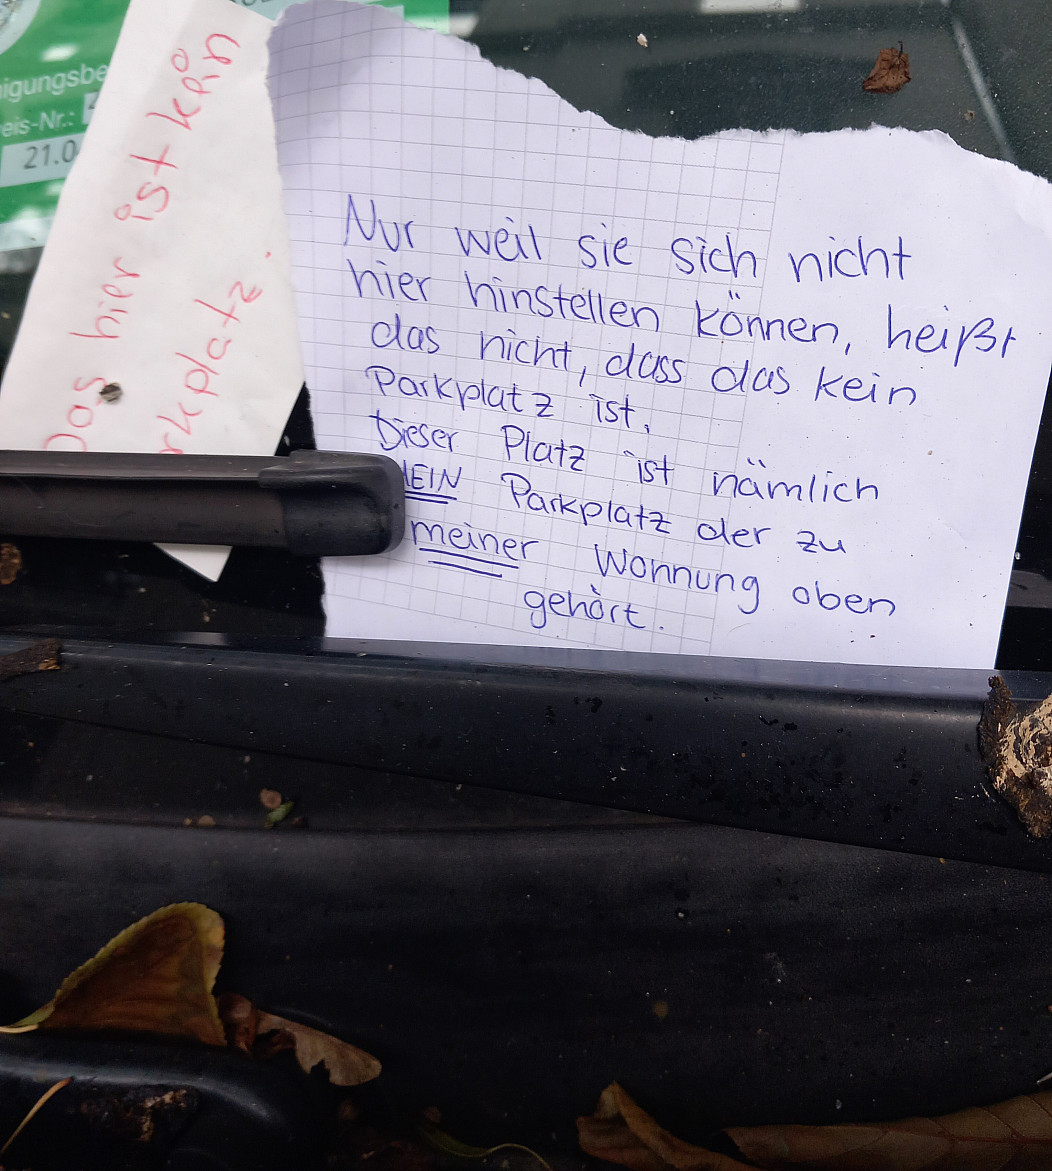 21.0
Das hier ist kein
Nur weil sie sich nicht
hier hinstellen können, heißt
das nicht, dass das kein
Parkplatz ist.
Dieser Platz ist nämlich
Parkplatz der zu
meiner Wohnung oben
gehört.